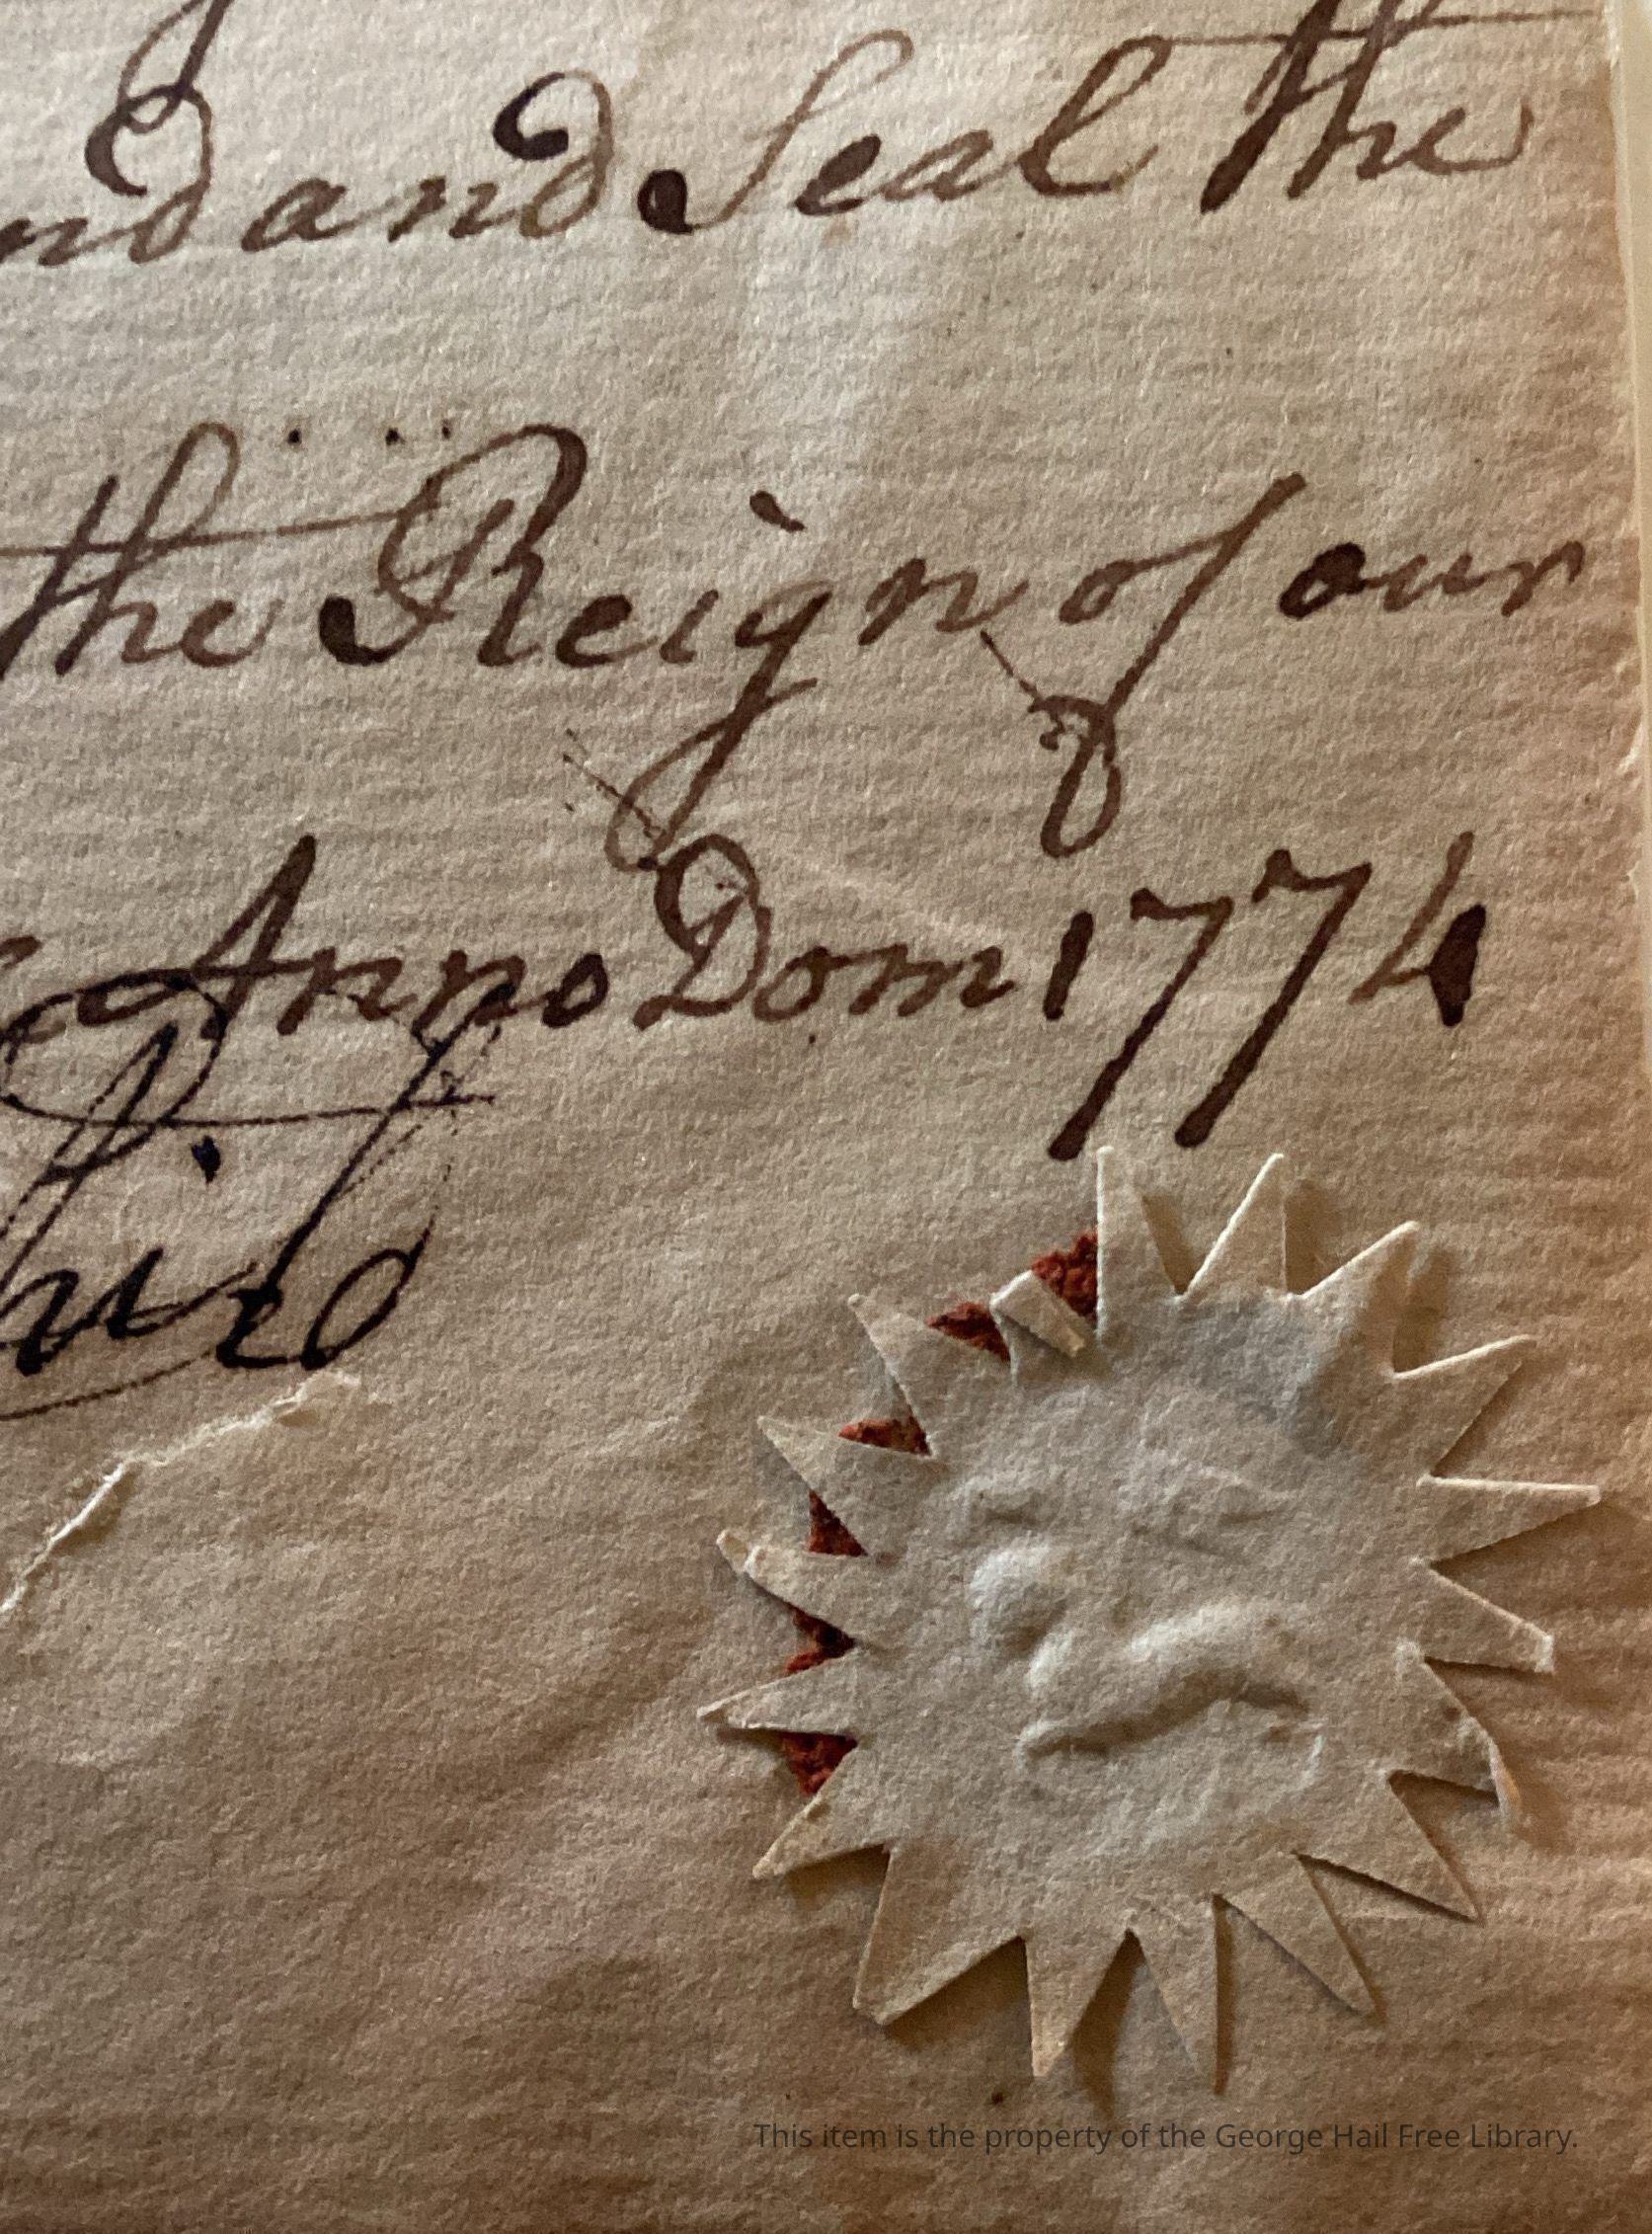 nd and Seal the
the Reign of our
Anno Dom 1774
This item is the property of the George Hail Free Library.